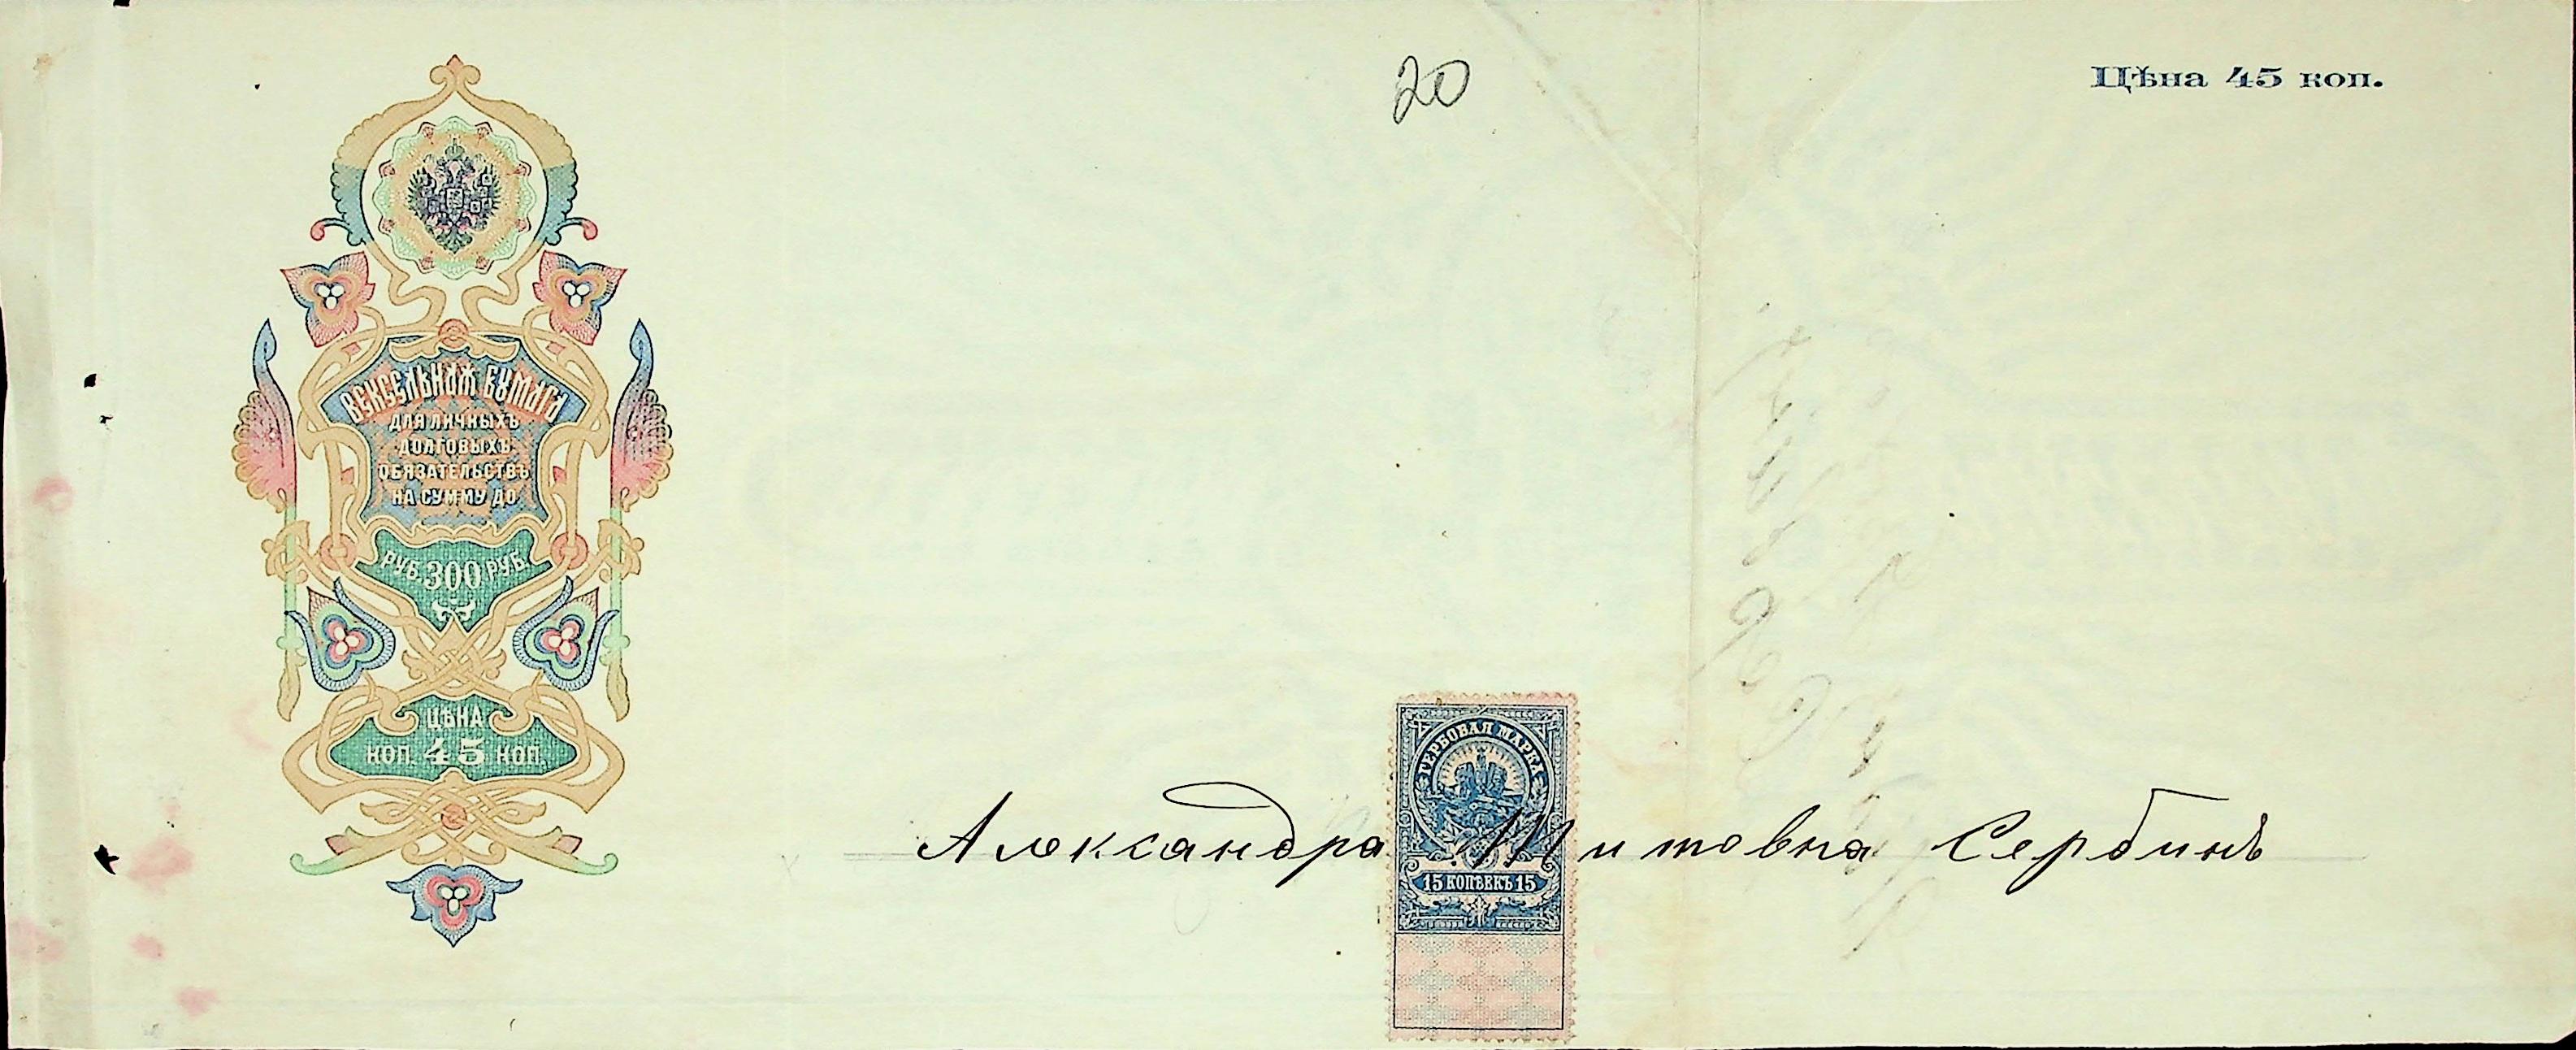 20
Цѣна 45 коп.
ВЕКСЕЛЬНАЯ БУМАГА
ДЛЯ ЛИЧНЫХЪ
ДОЛГОВЫХЪ
ОБЯЗАТЕЛЬСТВЪ
НА СУММУ ДО
РУБ. 300 РУБ.
ЦѢНА
КОП. 45 КОП.
ГЕРБОВАЯ МАРКА
Александра Титовна Сербинъ
15 КОПѢЕКЪ 15